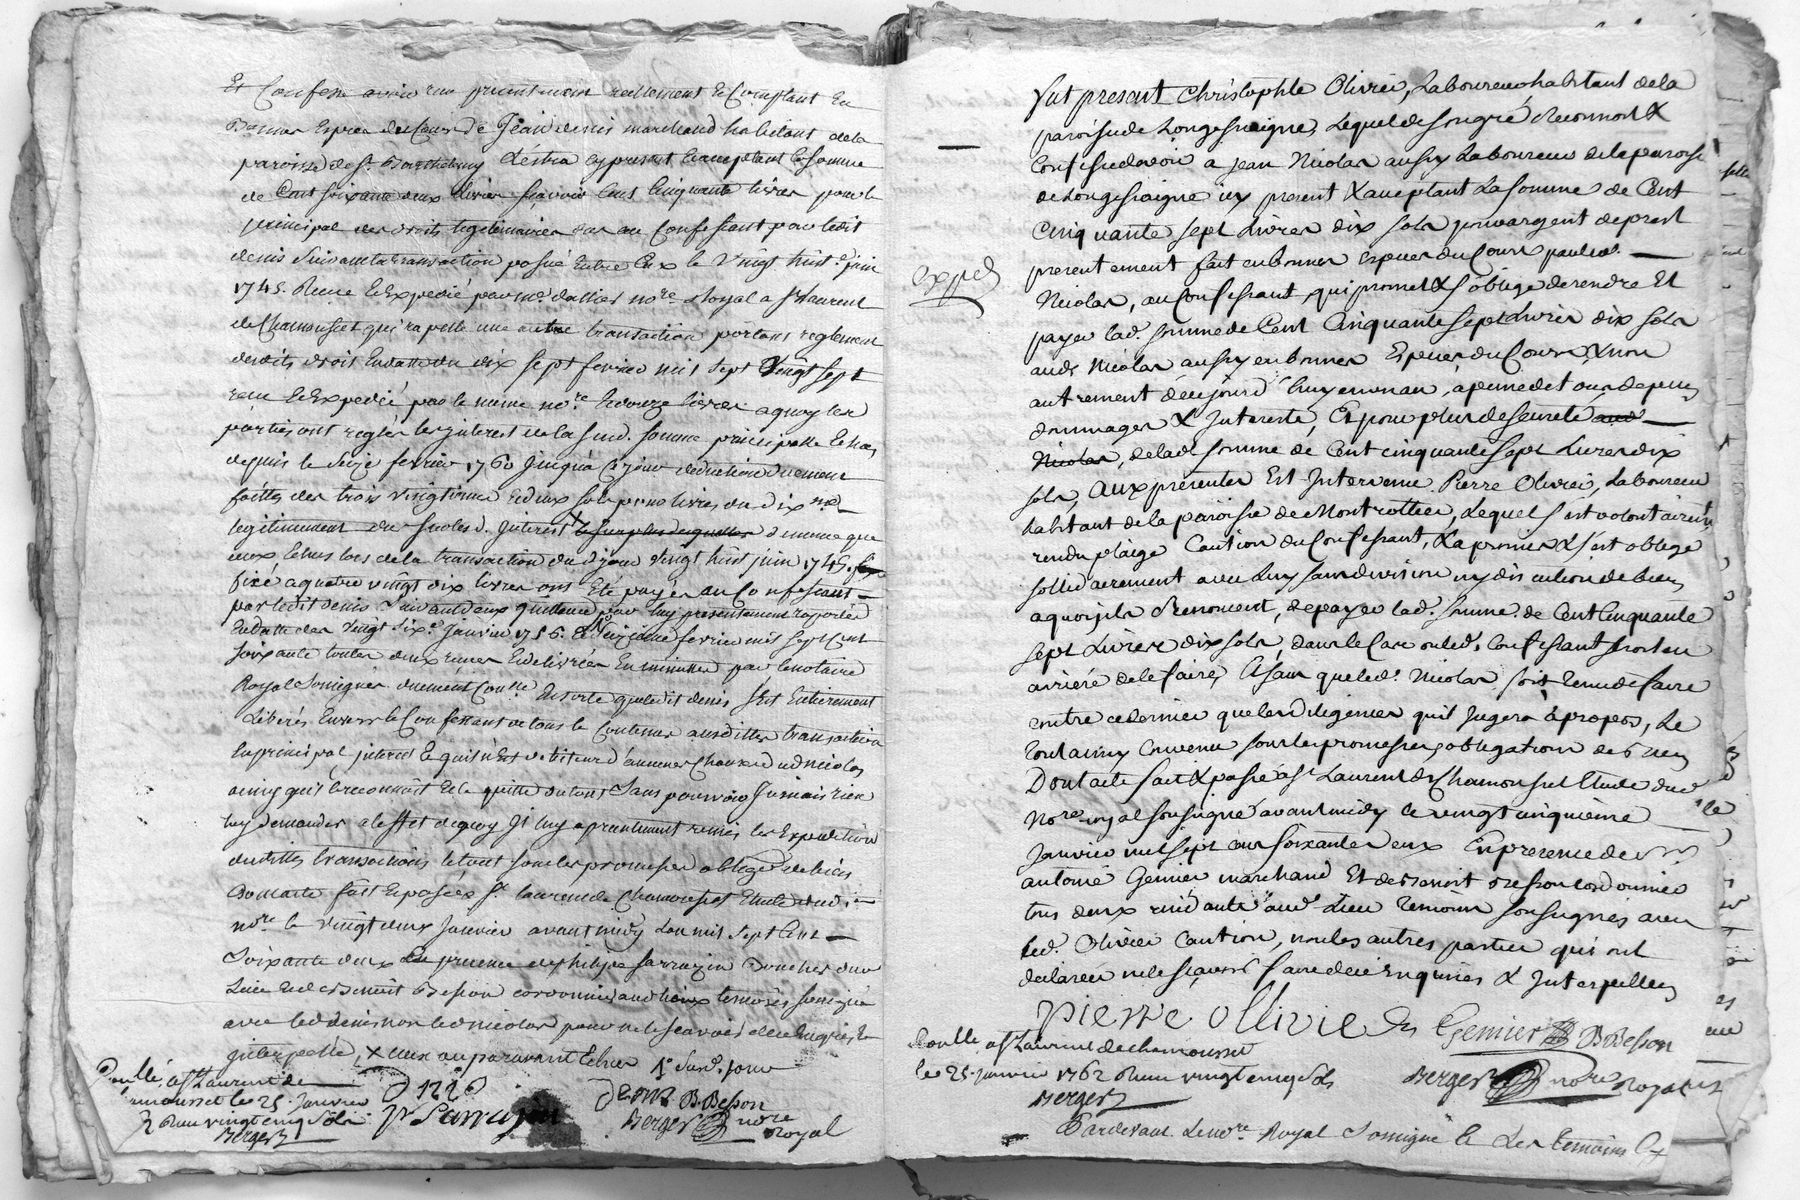 Et Confesse avoir reçu présentement reellement & Comptant En
Bonnes Especes du Cours De Jean denis marchand habitant de la
paroisse de St. Barthelemy Lestra cy present & acceptant la somme
de Cent soixante deux livres sçavoir Cent Cinquante livres pour le
principal des droits legitimaires au Confessant par ledit
denis suivant la transaction passée Entre Eux le vingt huit juin
1745. Reçue & Expedié par me. dallier nore. Royal a St Laurent
de Chamousset qui rapelle une autre transaction portant reglement
desdits droits En datte du dix sept fevrier mil sept vingt sept
reçu & Expedié par le meme nore. & douze livres a quoy les
parties ont reglés les interest de la sud. somme principalle Echus
depuis le seize fevrier 1760 jusqu'a Ce jour deduction duement
faittes des trois vingtieme & deux sols pour livres du dixme
legitimement du sur lesd. interest de meme que
ceux Echus lors de la transaction dud. jour vingt huit juin 1745.
fixé a quatre vingt dix livres ont Eté payes au Confessant
par ledit denis suivant deux quittances par luy presentement raportées
En datte des vingt six. janvier 1756. & seizieme fevrier mil sept Cent
soixante toutes deux reçues & delivrées En minutte par le notaire
Royal soussigné duement Conlle En sorte que ledit denis s'est Entierement
Liberés Envers le Confessant de tout le Contenus ausdittes transactions
En principal interest
ainsy qu'il le reconnoit & le quitte du tout sans pouvoir jamais rien
luy demander a l'effet de quoy il luy a presentement remis les Expeditions
desdittes transactions le tout sous les promesses obligé de biens
Dont acte fait & passé a St. Laurent de Chamousset Etude dudi
nore le vingt deux janvier avant midy L'an mil sept Cent
Soixante deux En presence de philipe sarrazin Boucher dud
Lieu & de Benoit Besson cordonnier audit lieux temoins soussignés
avec led denis non led nicolas pour ne le scavoir de ce Enquis &
interpellé, X ceux auparavant Echus
D 1228
denis B. Besson
Pr Sarrazin
Berger nore
Royal
Conllé, a St Laurent de
chamousset le 25. janvier
Reçu vingt cinq Sols
Berger
Expedié
Fut present Christophle Olivier, Laboureur habitant de la
paroisse de Longessaigne, Lequel de son gré Reconnoit &
Confesse devoir a Jean Nicolas aussy Laboureur de la paroisse
de Longessaigne icy present & acceptant La somme de Cent
Cinquante sept Livres dix sols pour argent de prest
presentement fait en bonnes Especes du Cours par led.
Nicolas, au Confessant, qui promet & s'oblige de rendre Et
payer lad. somme de Cent Cinquante sept Livres dix sols
aud. Nicolas aussy en bonnes Especes du Cours & non
autrement d'aujourd'huy en un an, a peine de tous depens
dommages & Interests, Et pour plus de seureté aud
Nicolas, de lad somme de Cent cinquante sept Livres dix
sols, Aux presentes Est Intervenu Pierre Olivier, Laboureur
habitant de la paroisse de Montrottier, Lequel s'est volontairemt.
rendu plaige Caution du Confessant, & a promis & s'est obligé
sollidairement avec Luy sans division ny discution de biens
a quoy ils Renoncent, de payer lad. somme de Cent Cinquante
sept Livres dix sols, dans le Cas ou led. Confessant seroit en
arriéré de le faire, & sans que led. Nicolas soit tenu de faire
contre ce dernier que les diligences qu'il jugera a propos, Le
tout ainsy Convenu sous les promesses, obligation de biens
Dont acte fait & passé a St Laurent de Chamousset Etude du
Nore. royal soussigné avant midy le vingt cinquieme
Janvier mil sept cent soixante deux En presence de Sr
antoine Genier marchand Et de Benoit Besson cordonnier
tous deux residants aud. Lieu Temoins soussignés avec
led. Olivier Caution, non les autres parties qui ont
declarées ne le sçavoir faire de ce Enquises & Interpellées
pierre ollivie
Genier B. Besson
Conllé a St Laurent de chamousset
le 25. janvier 1762 Reçu vingt cinq Sols
Berger
Berger nore Royal
Pardevant Le nore. Royal soussigné & Les temoins